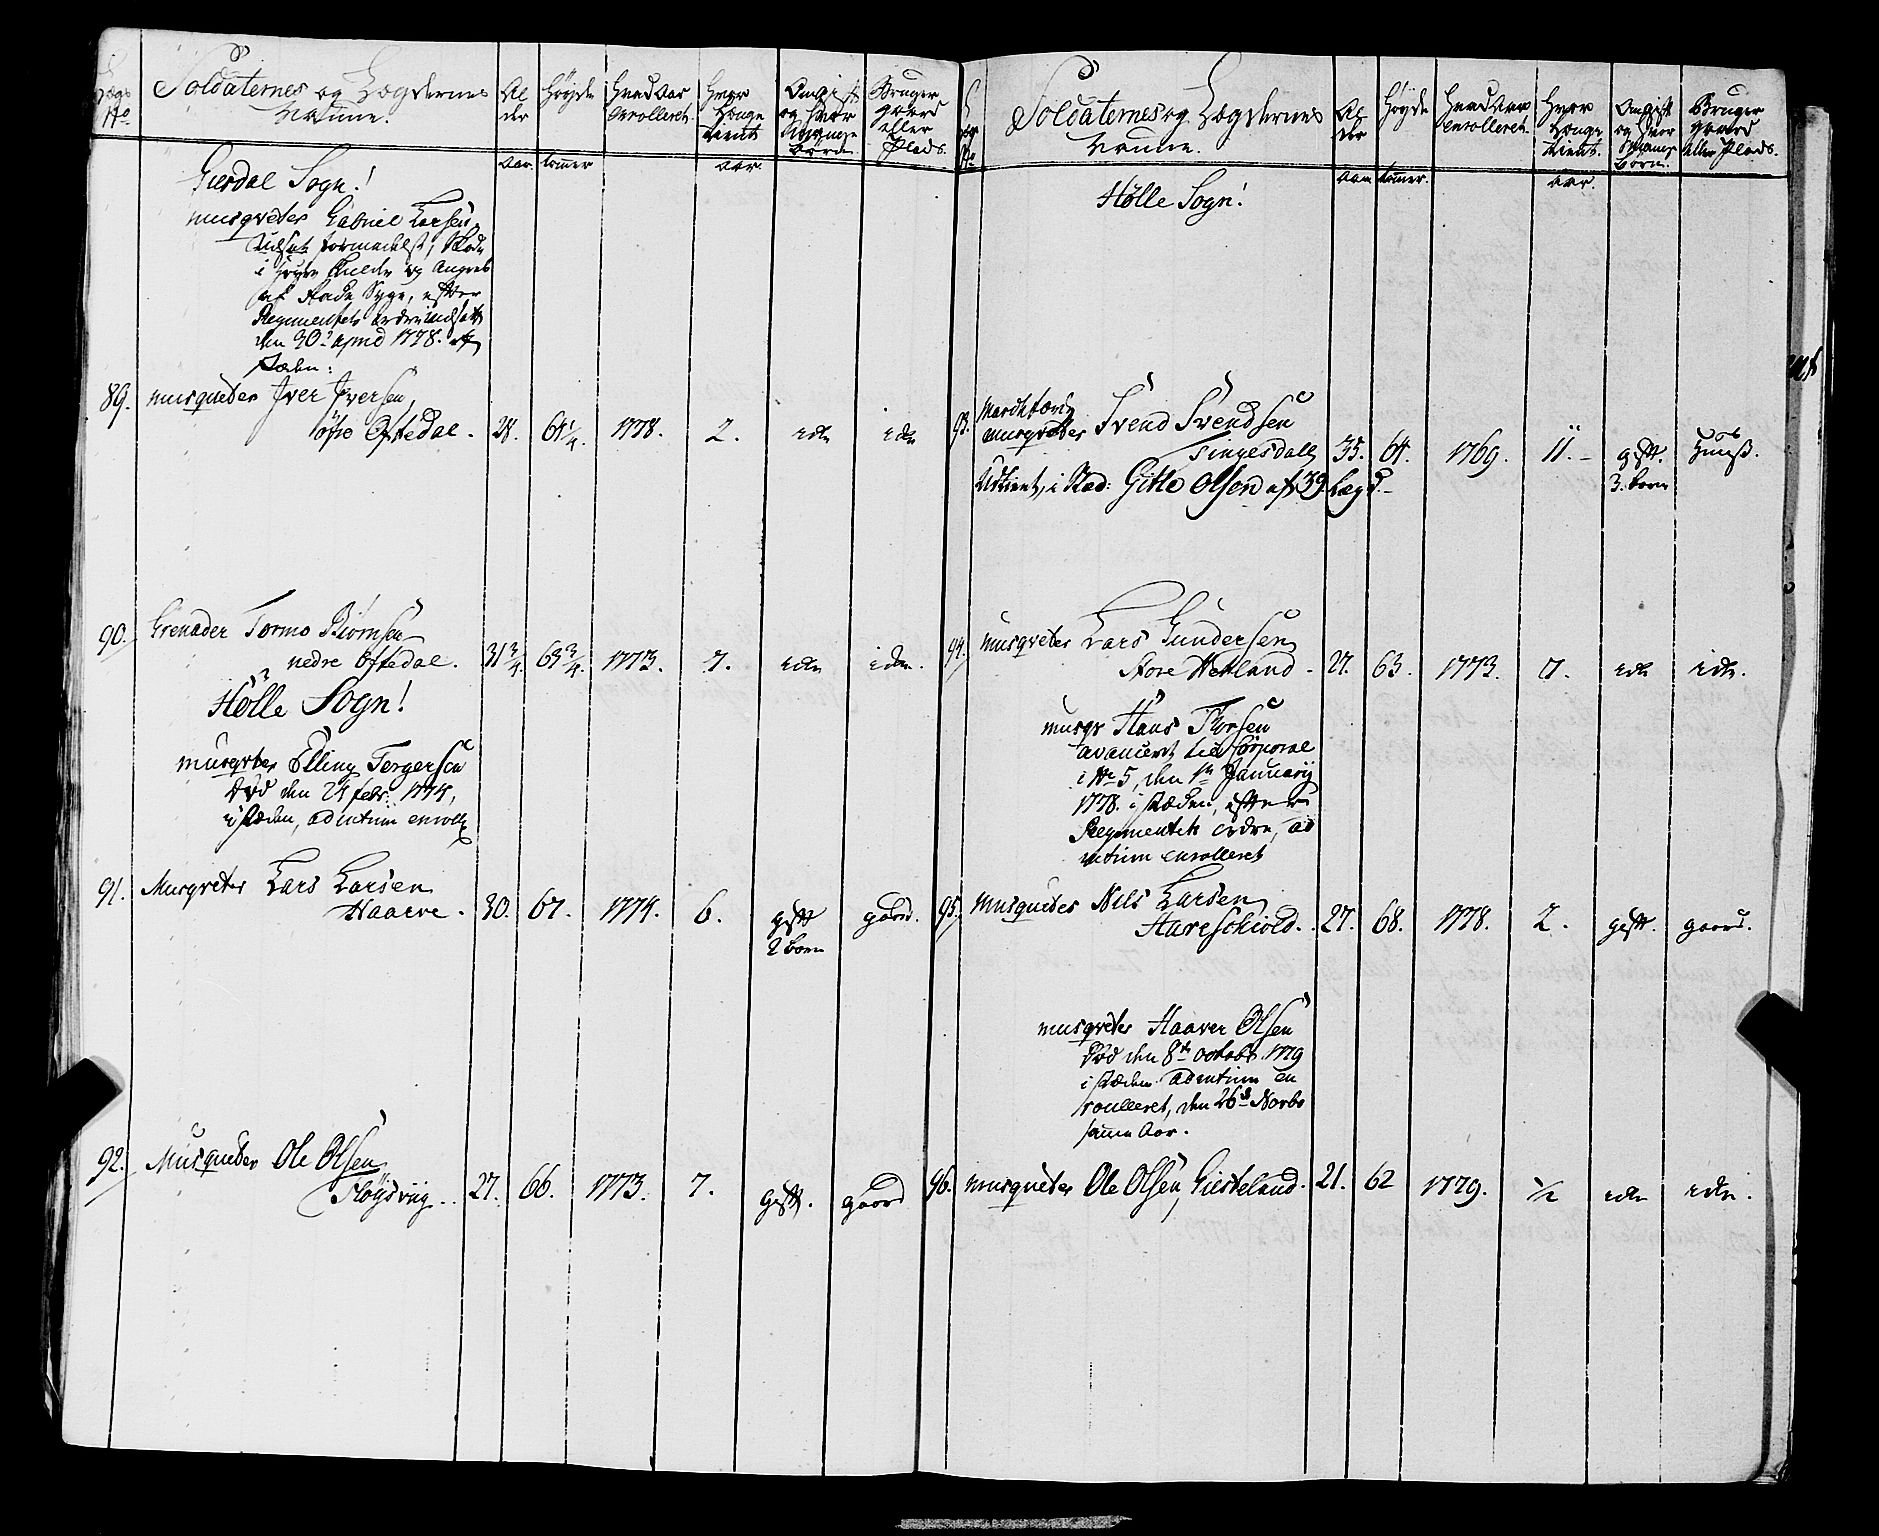 Lægs No
Soldaternes og Lægdernes
Navne.
Al
der
Høyde
Hvad Aar
Enrolleret.
Hvor
længe
tient
Om gift
og hvor
mange
børn
Bruger
gaard
eller
Plads.
aar. tomer
aar.
Giesdal Sogn!
musqveter Gabriel Larsen
Udsat formedelst, Skade
i høyre
af Syge, efter
Regimentets ordre udsatt
den 30te april 1778.
stæden:
89. musqueter Iver Iversen,
øfre Oftedal. 28. 64 1/4. 1778. 2. icke icke
90. Grenader Tormo Biørnsen
nedre Oftedal. 31 3/4. 63 3/4. 1773. 7. icke icke.
Hølle Sogn!
musqveter Elling Torgersen
død den 24 febr: 1774,
i stæden, ad intrim enroll:
91. Musqveter Lars Larsen
Haaeve. 30. 67. 1774. 6. gift gaard.
2 born
92. Musqueter Ole Olsen
Fløysviig.. 27. 66. 1773. 7. gift. gaard
Soldaternes og Lægdernes
Navne.
Al
der
Høyde
Hvad Aar
Enrolleret.
Hvor
længe
tient.
Om gift
og hvor
mange
born.
Bruger
gaard
eller Plads.
aar tomer.
aar.
Hølle Sogn!
93. musqveter Svend Svendsen
Tingesdall 35. 64. 1769. 11. - gift. Huuß.
Udtient, i Stad: Gitle Olsen af 39 Lægd.- 3. born
94. musqveter Lars Gundersen
Store Hetland. 27. 63. 1773. 7. icke icke.
musqv Hans Thorsen
avanceret til Corporal
i No 5, den 1te Januarij
1778. i stæden, efter
Regimentets ordre, ad
intrim enrolleret
95. musqueter Nils Larsen
Hareschiold.. 27. 68. 1778. 2. gift. gaard.
musqveter Haaver Olsen
død den 8te octobr. 1779
i stæden ad intrim en
roulleret, den 26de Novbr
samme Aar.
96. musqueter Ole Olsen, Giesteland. 21. 62 1779. 1/2 icke icke.